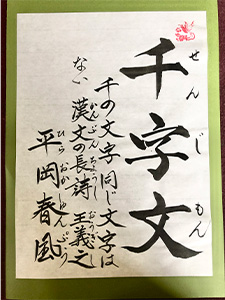 千字文
せんじもん
千の文字同じ文字は
ない
漢文の長詩 王義之
かんぶん ちょうし おうぎし
平岡春風
ひらおかしゅんぷう